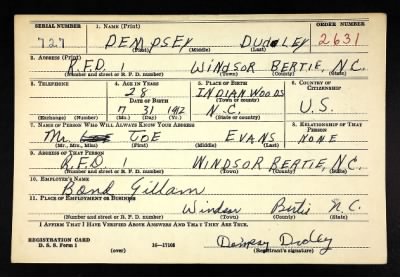 SERIAL NUMBER 1. NAME (Print) ORDER NUMBER
727 DEMPSEY DUDLEY 2631
(First) (Middle) (Last)
2. ADDRESS (Print)
R.F.D. 1 WINDSOR BERTIE, N.C.
(Number and street or R. F. D. number) (Town) (County) (State)
3. TELEPHONE 4. AGE IN YEARS 5. PLACE OF BIRTH 6. COUNTRY OF CITIZENSHIP
28 INDIAN WOODS
DATE OF BIRTH (Town or county)
7 31 1912 N.C. U.S.
(Exchange) (Number) (Mo.) (Day) (Yr.) (State or country)
7. NAME OF PERSON WHO WILL ALWAYS KNOW YOUR ADDRESS 8. RELATIONSHIP OF THAT PERSON
Mr. JOE EVANS NONE
(Mr., Mrs., Miss) (First) (Middle) (Last)
9. ADDRESS OF THAT PERSON
R.F.D. 1 WINDSOR BERTIE, N.C.
(Number and street or R. F. D. number) (Town) (County) (State)
10. EMPLOYER'S NAME
Bond Gillam
11. PLACE OF EMPLOYMENT OR BUSINESS
Windsor Bertie N.C.
(Number and street or R. F. D. number) (Town) (County) (State)
I AFFIRM THAT I HAVE VERIFIED ABOVE ANSWERS AND THAT THEY ARE TRUE.
REGISTRATION CARD
D. S. S. Form 1 (over) 16—17105 Dempsy Dudley
(Registrant's signature)